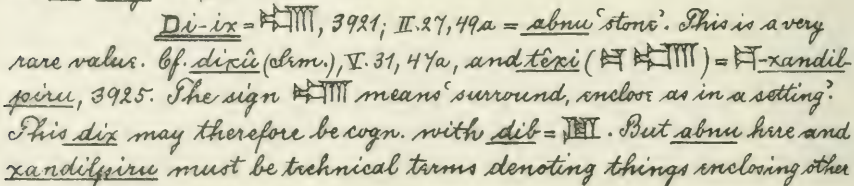 Di-ix = 𒁾, 3921; II. 27, 49a = abnu 'stone'. This is a very
rare value. Cf. dixû (Sem.), V. 31, 47a, and têxi ( ) = -xandil-
piru, 3925. The sign means 'surround, enclose as in a setting'.
This dix may therefore be cogn. with dib = . But abnu here and
xandilpiru must be technical terms denoting things enclosing other